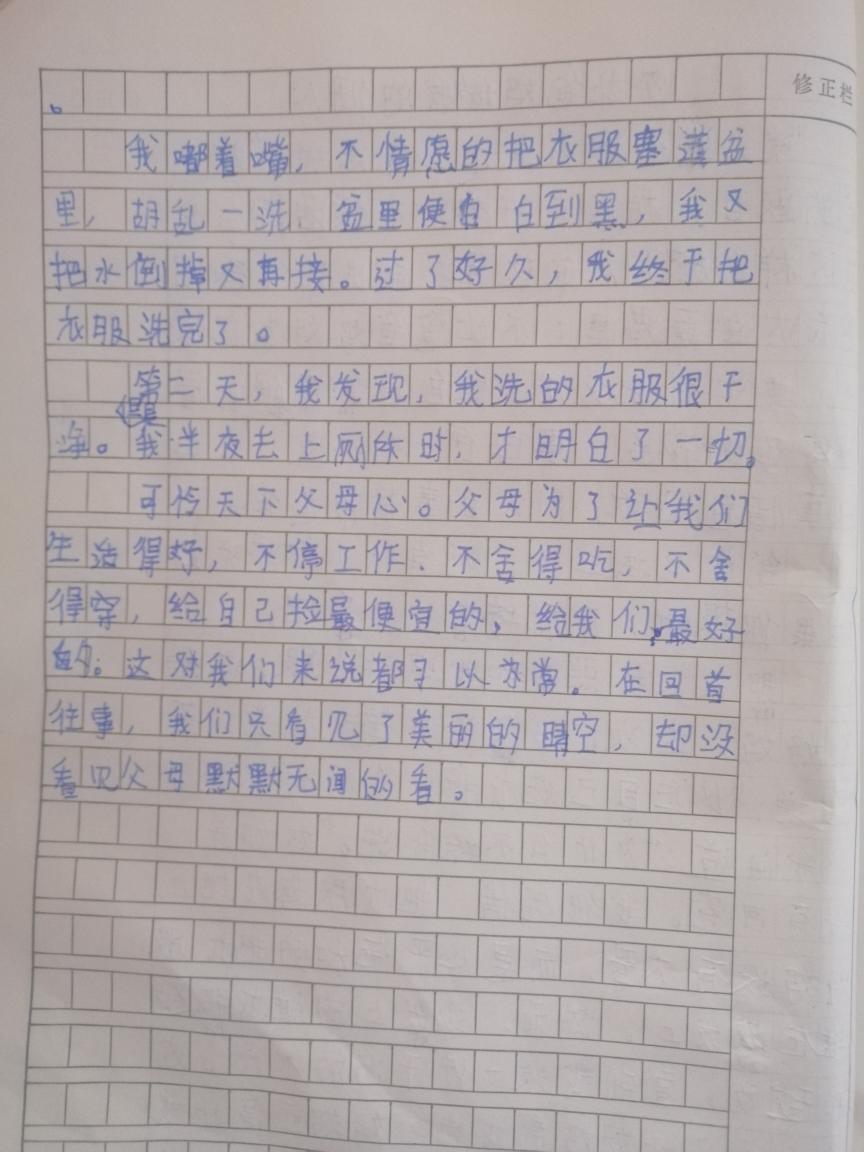 修正栏
。
我嘟着嘴，不情愿的把衣服塞进盆
里，胡乱一洗，盆里便由白到黑，我又
把水倒掉又再接。过了好久，我终于把
衣服洗完了。
第二天，我发现，我洗的衣服很干
净。我半夜去上厕所时，才明白了一切。
可怜天下父母心。父母为了让我们
生活得好，不停工作，不舍得吃，不舍
得穿，给自己捡最便宜的，给我们最好
的。这对我们来说都习以为常。在回首
往事，我们只看见了美丽的晴空，却没
看见父母默默无闻的看。